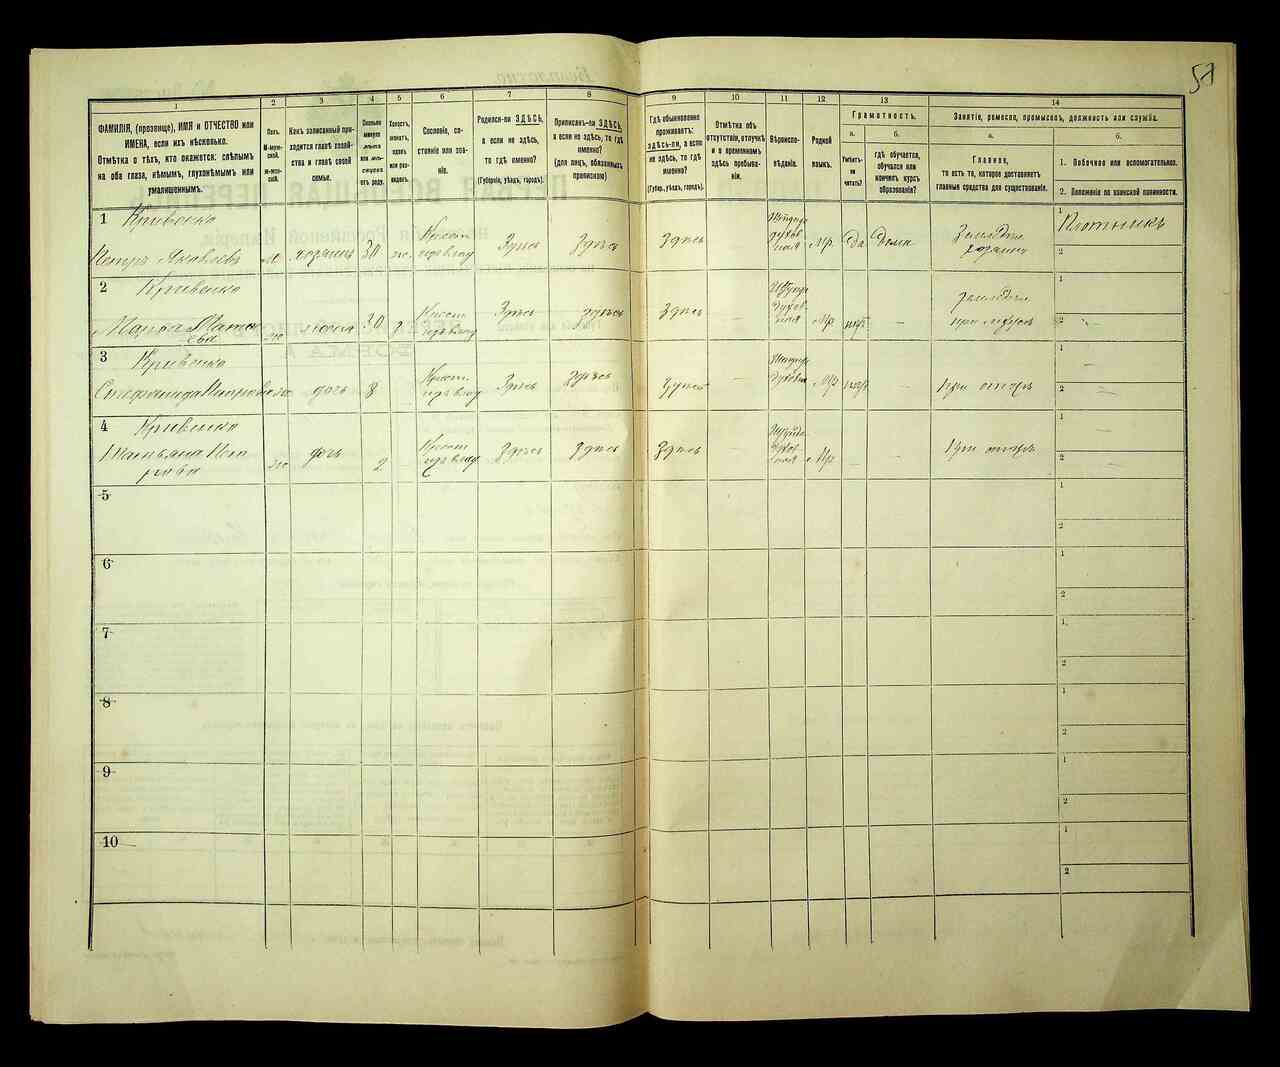 57
1
2
3
4
5
6
7
8
9
10
11
12
13
14
ФАМИЛІЯ, (прозвище), ИМЯ и ОТЧЕСТВО или
ИМЕНА, если ихъ нѣсколько.
Отмѣтка о тѣхъ, кто окажется: слѣпымъ
на оба глаза, нѣмымъ, глухонѣмымъ или
умалишеннымъ.
Полъ.
М-муж-
ской.
Ж-жен-
скій.
Какъ записанный при-
ходится главѣ хозяй-
ства и главѣ своей
семьи.
Сколько
минуло
лѣтъ
или мѣ-
сяцевъ
отъ роду.
Холостъ,
женатъ,
вдовъ
или раз-
веденъ.
Сословіе, со-
стояніе или зва-
ніе.
Родился-ли ЗДѢСЬ,
а если не здѣсь,
то гдѣ именно?
(Губернія, уѣздъ, городъ).
Приписанъ-ли ЗДѢСЬ,
а если не здѣсь, то гдѣ
именно?
(для лицъ, обязанныхъ
припискою)
Гдѣ обыкновенно
проживаетъ:
ЗДѢСЬ-ли, а если
не здѣсь, то гдѣ
именно?
(Губерн., уѣздъ, городъ).
Отмѣтка объ
отсутствіи, отлучкѣ
и о временномъ
здѣсь пребыва-
ніи.
Вѣроиспо-
вѣданіе.
Родной
языкъ.
Грамотность.
а.
Умѣетъ-
ли
читать?
б.
гдѣ обучается,
обучался или
кончилъ курсъ
образованія?
Занятіе, ремесло, промыселъ, должность или служба.
а.
Главное,
то есть то, которое доставляетъ
главныя средства для существованія.
б.
1. Побочное или вспомогательное.
2. Положеніе по воинской повинности.
1
Кривенко
Петръ Яковлевъ
м
хозяинъ
30
ж
Крест.
Здѣсь
Здѣсь
Здѣсь
Мр
да
дома
Земледѣл.
хозяинъ
1 Плотникъ
2
2
Кривенко
ж
30
Крест.
Здѣсь
Здѣсь
Здѣсь
Мр
нѣтъ
-
Земледѣл.
при мужѣ
1
2 -
3
Кривенко
дочь
8
-
Крест.
Здѣсь
Здѣсь
Здѣсь
Мр
нѣтъ
-
при отцѣ
1
2
4
Кривенко
Татьяна Пет
рова
ж
дочь
2
-
Крест.
Здѣсь
Здѣсь
Здѣсь
Мр
-
-
при отцѣ
1
2
5
1
2
6
1
2
7
1
2
8
1
2
9
1
2
10
1
2